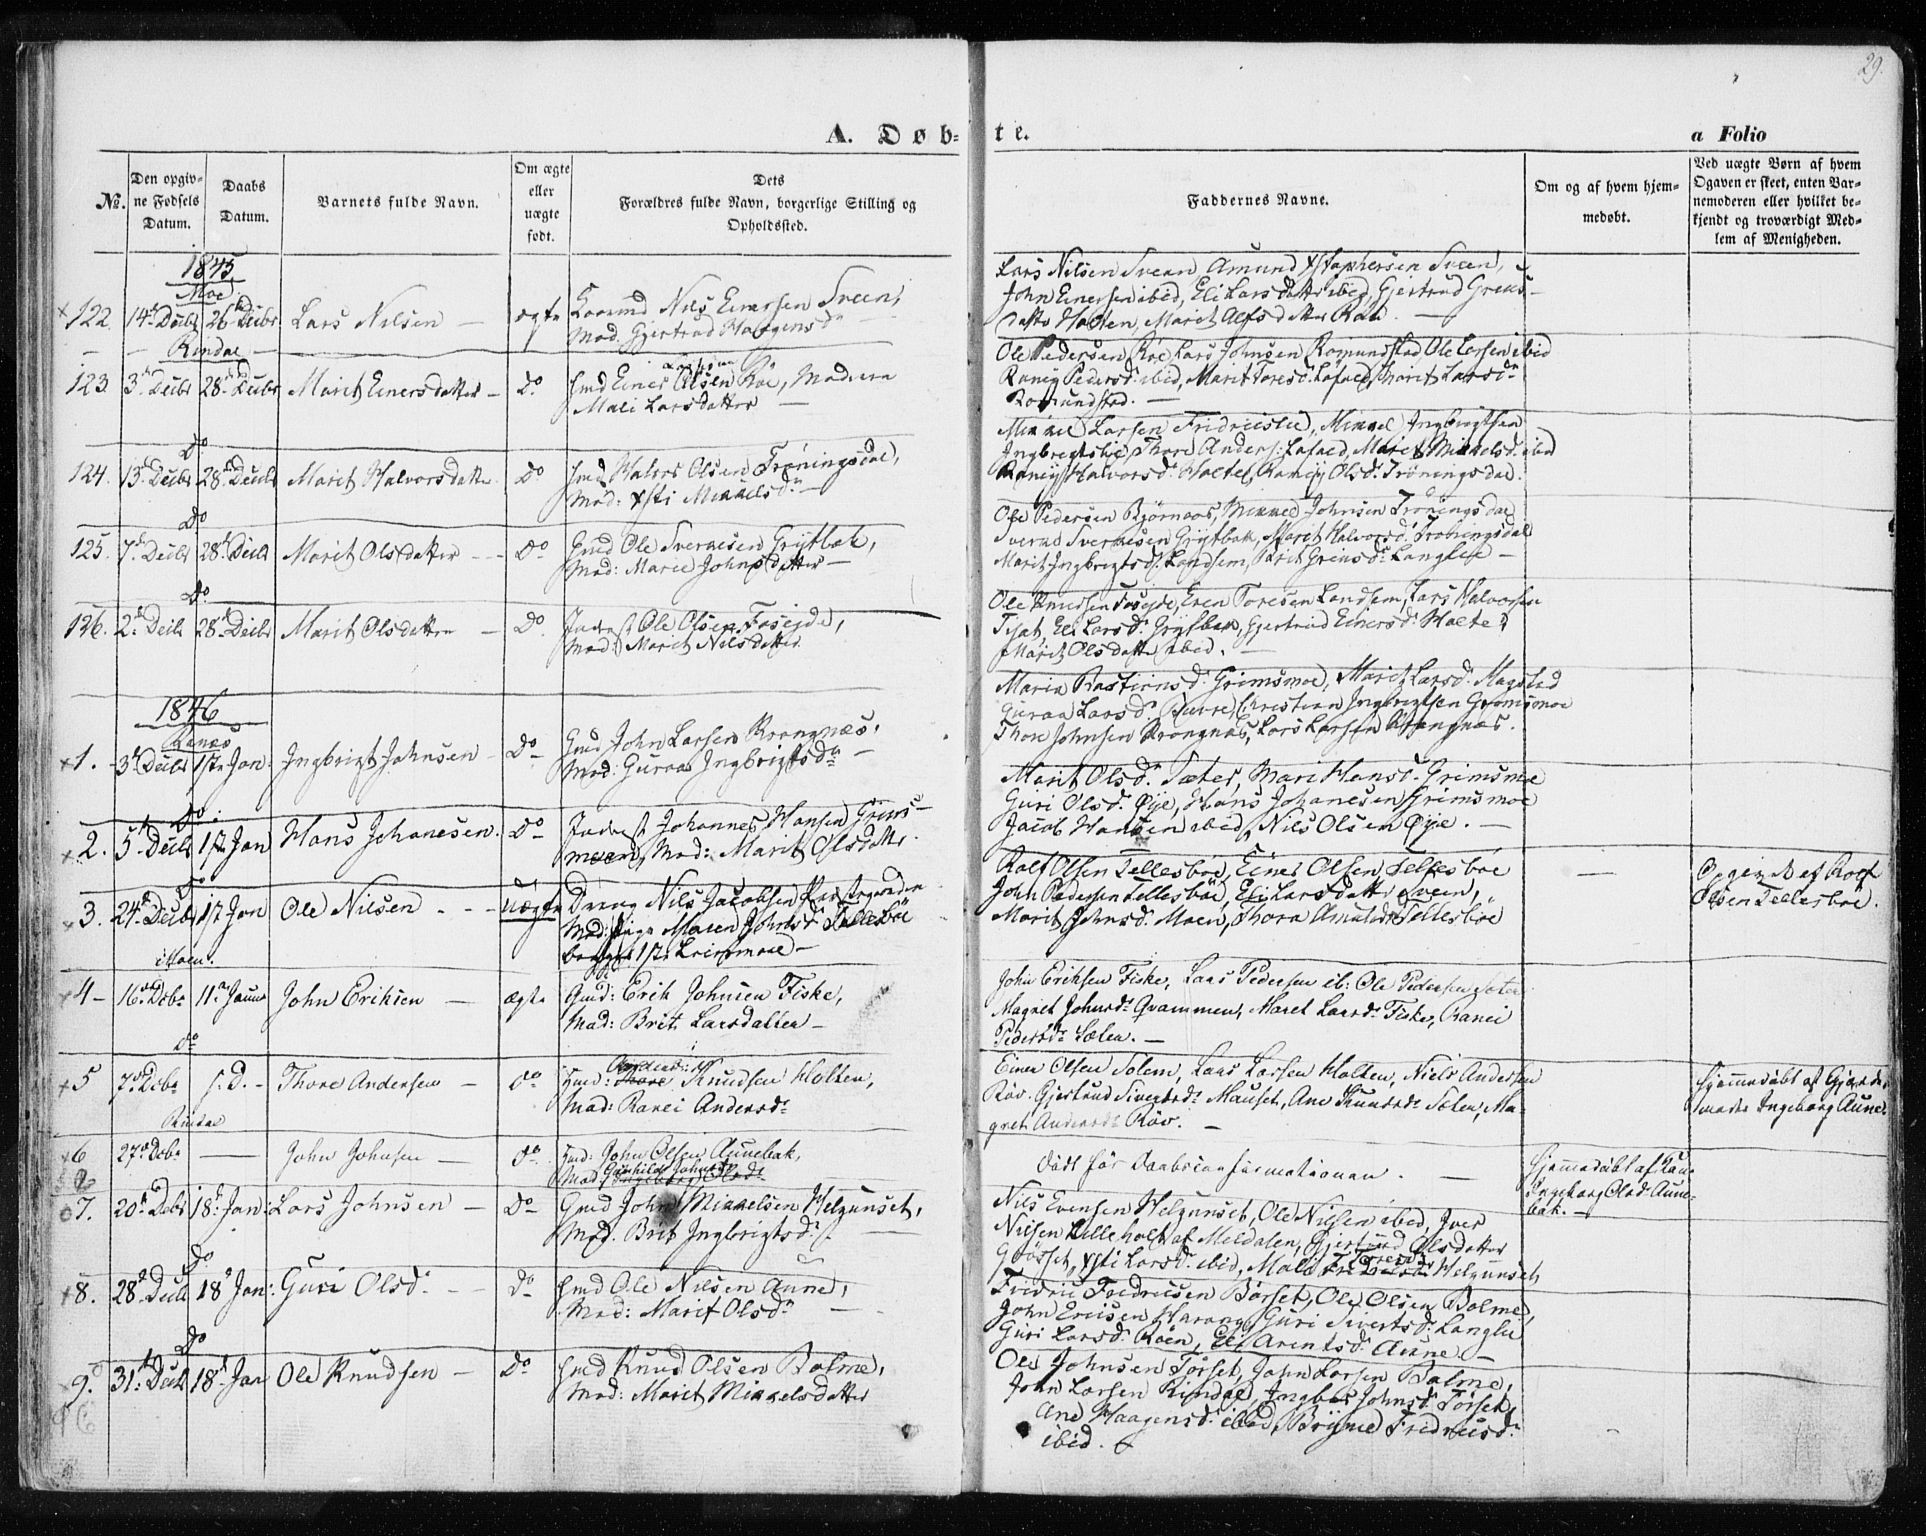 29.
A. Døb=
te.
a Folio
No.
Den opgiv=
ne Fødsels
Datum.
Daabs
Datum.
Barnets fulde Navn.
Om ægte
eller
uægte
født.
Dets
Forældres fulde Navn, borgerlige Stilling og
Opholdssted.
Faddernes Navne.
Om og af hvem hjem=
medøbt.
Ved uægte Børn af hvem
Opgaven er skeet, enten Bar=
nemoderen eller hvilket be=
kjendt og troværdigt Med=
lem af Menigheden.
1845
Moe
122 14de Decbr 26de Decbr Lars Nilsen — ægte
Nils Einersen Sveen,
Mod. Gjertrud Haagensdr
Lars Nilsen Sveen, Amund Xstophersen Sveen,
John Einersen ibid, Eli Larsdatter ibid, Gjertrud
Holten, Marit Alfsdatter
Rindal
123. 3de Decbr 28de Decbr Marit Einersdatter — Do
Hmd Einer Olsen Röe, Moderen
Mali Larsdatter —
Ole Pedersen Röe, Lars Johnsen Romundstad, Ole Larsen ibid
Ranig Pedersd. ibid, Marit Toresd. Löfald, Marit Larsdr
Romundstad. —
Do
124. 13de Decbr 28de Decbr Marit Halvorsdatter Do
Hmd Halvor Olsen Tröningsdal,
Mod: Xsti Mikkelsdr —
Mikkel Larsen Fridriislie, Mikkel Ingbrigtsen
Ingbrigtslie, Thore Anders: Löfald, Marit Mikkelsd. ibid
Ranig Halvorsd. Holte, Ranig Olsd. Tröningsdal.
Do
125. 7de Decbr 28de Decbr Marit Olsdatter — Do
Gmd Ole Sversesen Grytbak,
Mod: Marie Johnsdatter —
Ole Pedersen Björnaas, Mikkel Johnsen Tröningsdal
Grytbak, Marit Halvorsd. Tröningsdal
Marit Ingbrigtsd. Landsem, Marit Langlie —
Do
126. 2den Decbr 28de Decbr Marit Olsdatter — Do
Inderst Ole Olsen Fosegde,
Mod: Marit Nilsdatter
Ole Knudsen Fosegde, Even Toresen Landsem, Lars Halvorsen
Eli Larsd. Grytbak, Gjertrud Einersd. Holte,
Marit Olsdatter ibid. —
1846
Ranæs
1. 3de Decbr 1ste Jan Ingbrigt Johnsen — Do
Gmd John Larsen Krangnæs,
Mod. Guroe Ingbrigtsdr —
Maria Bastiansd. Grimsmoe, Marit Larsd. Mogstad
Guroe Larsd. Christian Ingbrigtsen Grimsmoe
Thore Johnsen Krangnæs, Lars Larsen Krangnæs.
Do
2. 5te Decbr 1ste Jan Hans Johanesen. Do
Inderst Johannes Hansen Grims=
moen, Mod: Marit Olsdatter
Marit Olsd. Sæter, Mari Hansd. Grimsmoe
Guri Olsd. Øye, Hans Johanesen Grimsmoe
Jacob Hansen ibid, Nils Olsen Øye. —
Do
3. 24de Decbr 1ste Jan Ole Nilsen — uægte
Dreng Nils Jacobsen
Mod: Pige Maren Johnsd. Tellesböe
begges 1ste Leiermaal —
Rolf Olsen Tellesböe, Einer Olsen Tellesböe
John Pedersen Tellesböe, Eli Larsdatter Sveen,
Marit Johnsd. Moen, Thora Amundsd. Tellesböe
—
Opgivet af Rolf
Olsen Tellesböe.
Moen.
4 — 16de Dcbr 11te Januar John Eriksen — ægte
Gmd: Erik Johnsen Fiske,
Mod: Brit Larsdatter —
John Eriksen Fiske, Lars Pedersen ib: Ole Pedersen Sæter
Magret Johnsdr Qvammen, Maret Larsdr Fiske, Ranei
Pedersdr Sæter. —
Do
5 7de Dcbr s. D. — Thore Andersen — do
Anders
Hmd: Thore Knudsen Holten,
Mod: Ranei Andersdr
Einer Olsen Solem, Lars Larsen Holten, Niels Andersen
Röv. Gjertrud Sivertsdr Mauset, Ane Knudsdr Sæter, Ma=
gret Andersdr Röv. —
Hjemmedöbt af Gjorde=
moder Ingeborg Aune.
Rindal
6 27de Dcbr — John Johnsen — do
Hmd: John Olsen Aunebak,
Mod: Gunhild Johnsdr
Ingeborg Olsdr
Död för Daabsconfirmationen. —
Hjemmedöbt af
Ingeborg Olsd. Aune=
bak. —
7. 20de Decbr 18de Jan: Lars Johnsen — Do
Gmd John Mikkelsen Helgunset,
Mod. Brit Ingbrigtsdr —
Nils Evensen Helgunset, Ole Nilsen ibid, Iver
Nilsen Lilleholt af Meldalen, Gjertrud Olsdatter
Grösset, Xsti Larsd. ibid, Mali Toresd. Helgunset,
Do
8. 28de Decbr 18de Jan: Guri Olsd. — Do
Hmd Ole Nilsen Aune,
Mod: Marit Olsdr —
Fridric Fredriksen Börset, Ole Olsen Bolme,
John Ericsen Harang, Guri Sivertsd. Langlie
Guri Larsd. Röen, Eli Arentsd. Aune. —
Do
9. 31te Decbr 18de Jan Ole Knudsen — Do
Hmd Knud Olsen Bolme,
Mod: Marit Mikkelsdatter
Ole Johnsen Törset, John Larsen Bolme,
John Larsen Rindal, Ingebor Johnsd. Törset,
Ane Haagensd. ibid, Brynel Fridricsd.
ibid.